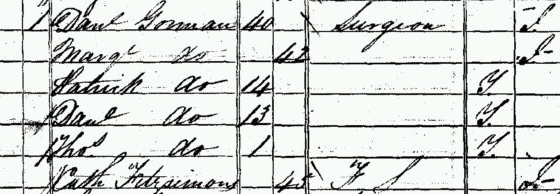 1 Danl Gorman 40 Surgeon I
Margt do 42 I
Patrick do 14 Y
Danl do 13 Y
Thos do 1 Y
Cath Fitzsimons 45 F S